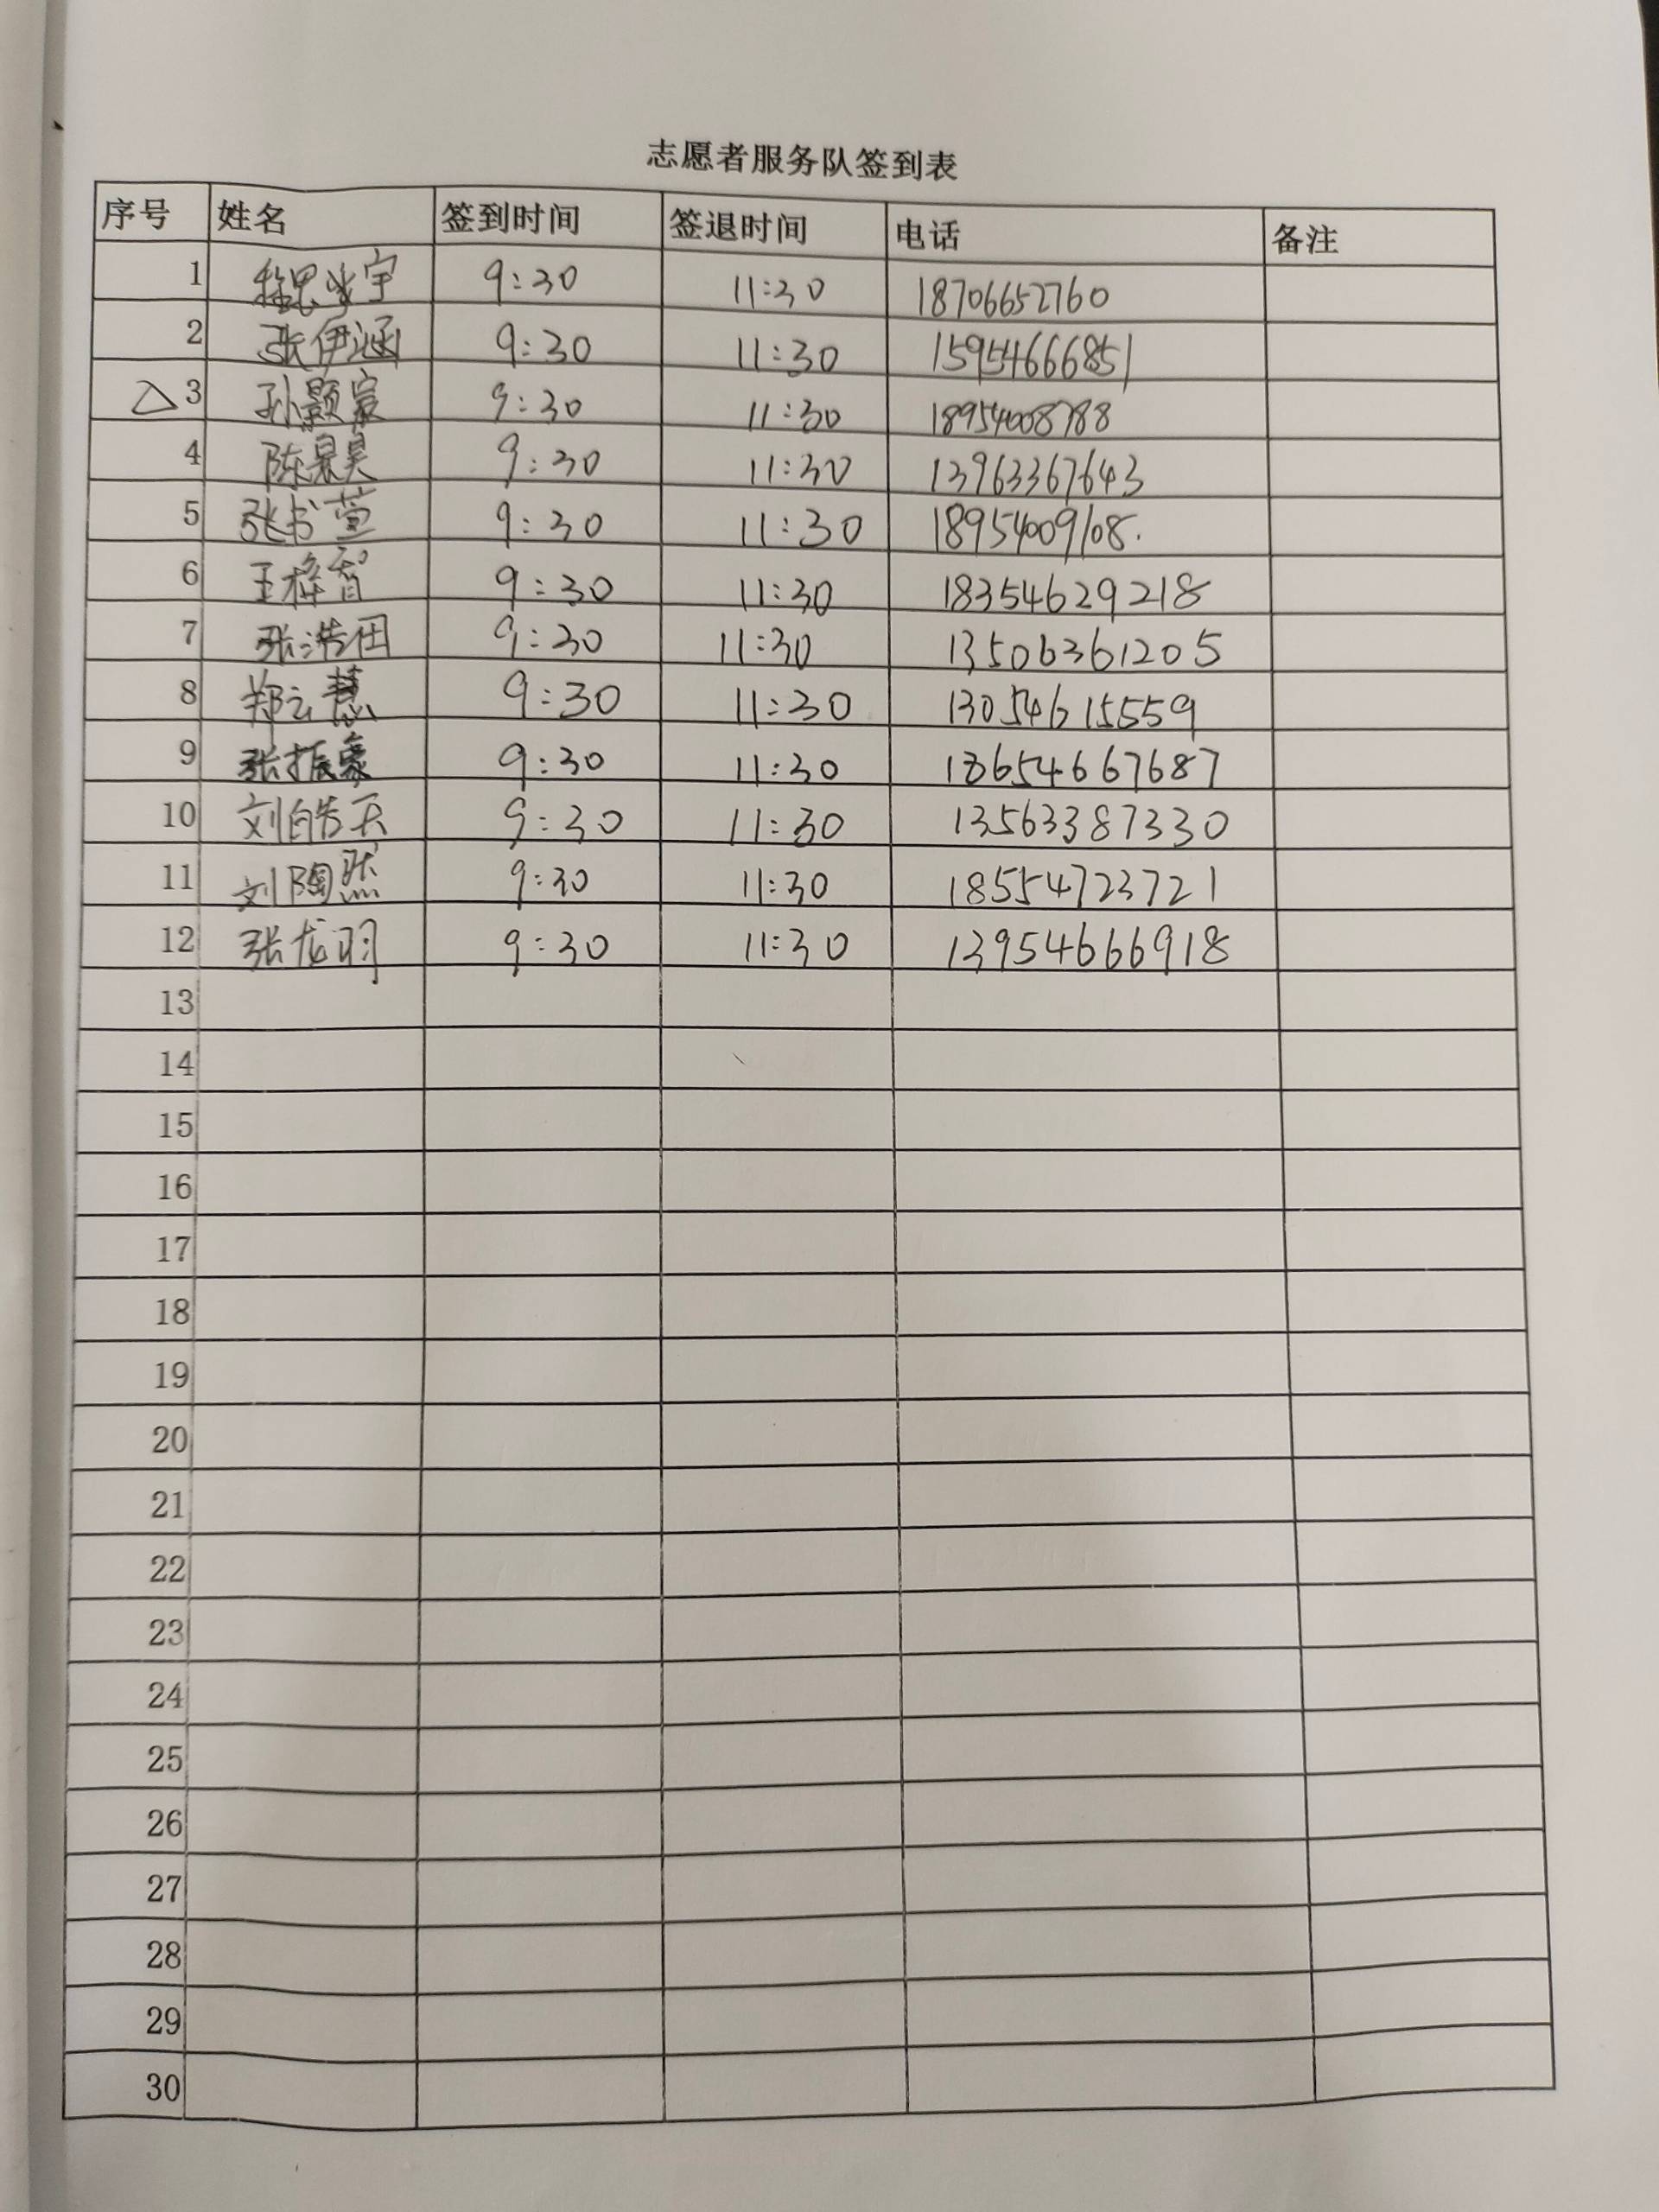 志愿者服务队签到表
序号 姓名 签到时间 签退时间 电话 备注
1 9:30 11:30 18706652760
2 张伊涵 9:30 11:30 15954666851
△ 3 孙颢宸 9:30 11:30 18954008788
4 陈昊 9:30 11:30 13963367643
5 张书萱 9:30 11:30 18954009108.
6 王梓智 9:30 11:30 18354629218
7 张浩田 9:30 11:30 13506361205
8 郑云慧 9:30 11:30 13054615559
9 张振豪 9:30 11:30 13654667687
10 刘皓天 9:30 11:30 13563387330
11 刘陶然 9:30 11:30 18554723721
12 张龙羽 9:30 11:30 13954666918
13
14
15
16
17
18
19
20
21
22
23
24
25
26
27
28
29
30